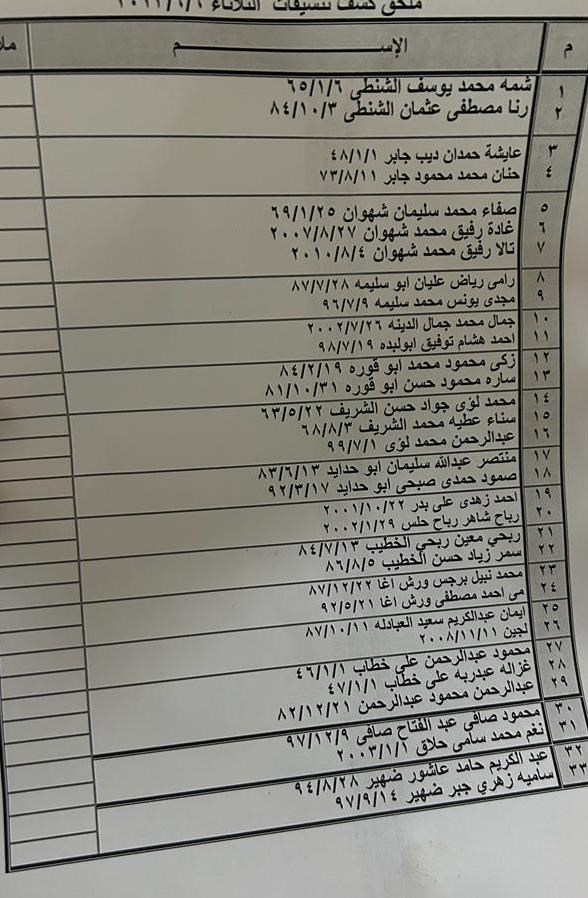 ملحق كشف تنسيقات الثلاثاء
م الإســـــم
١ شمه محمد يوسف الشنطى ٦٥/١/٦
٢ رنا مصطفى عثمان الشنطى ٨٤/١٠/٣
٣ عايشة حمدان ديب جابر ٤٨/١/١
٤ حنان محمد محمود جابر ٧٣/٨/١١
٥ صفاء محمد سليمان شهوان ٦٩/١/٢٥
٦ غادة رفيق محمد شهوان ٢٠٠٧/٨/٢٧
٧ تالا رفيق محمد شهوان ٢٠١٠/٨/٤
٨ رامى رياض عليان ابو سليمه ٨٧/٧/٢٨
٩ مجدى يونس محمد سليمه ٩٦/٧/٩
١٠ جمال محمد جمال الدينه ٢٠٠٢/٧/٢٦
١١ احمد هشام توفيق ابولبده ٩٨/٧/١٩
١٢ زكى محمود محمد ابو قوره ٨٤/٢/١٩
١٣ ساره محمود حسن ابو قوره ٨١/١٠/٣١
١٤ محمد لؤى جواد حسن الشريف ٦٣/٥/٢٢
١٥ سناء عطيه محمد الشريف ٦٨/٨/٣
١٦ عبدالرحمن محمد لؤى ٩٩/٧/١
١٧ منتصر عبدالله سليمان ابو حدايد ٨٣/٦/١٣
١٨ صمود حمدى صبحي ابو حدايد ٩٢/٣/١٧
١٩ احمد زهدى على بدر ٢٠٠١/١٠/٢٢
٢٠ رباح شاهر رباح حلس ٢٠٠٢/١/٢٩
٢١ ربحي معين ربحي الخطيب ٨٤/٧/١٣
٢٢ سمر زياد حسن الخطيب ٨٦/٨/٥
٢٣ محمد نبيل برجس ورش اغا ٨٧/١٢/٢٢
٢٤ مى احمد مصطفى ورش اغا ٩٢/٥/٢١
٢٥ ايمان عبدالكريم سعيد العبادله ٨٧/١٠/١١
٢٦ لجين ٢٠٠٨/١١/١١
٢٧ محمود عبدالرحمن على خطاب ٤٦/١/١
٢٨ غزاله عبدربه على خطاب ٤٧/١/١
٢٩ عبدالرحمن محمود عبدالرحمن ٨٢/١٢/٢١
٣٠ محمود صافى عبد الفتاح صافى ٩٧/١٢/٩
٣١ نغم محمد سامى حلاق ٢٠٠٣/١/٢
٣٢ عبد الكريم حامد عاشور ضهير ٩٤/٨/٢٨
٣٣ ساميه زهري جبر ضهير ٩٧/٩/١٤